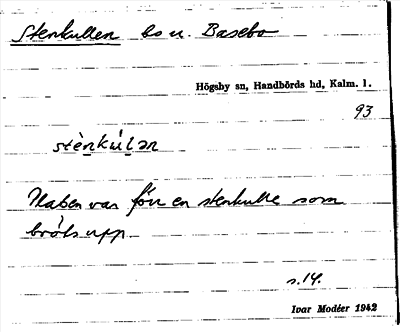 Stenkullen bo u. Basebo
Högsby sn, Handbörds hd, Kalm. l.
93
stènkúlən
Platsen var förr en stenkulle som
bröts upp.
s. 14.
Ivar Modéer 1942